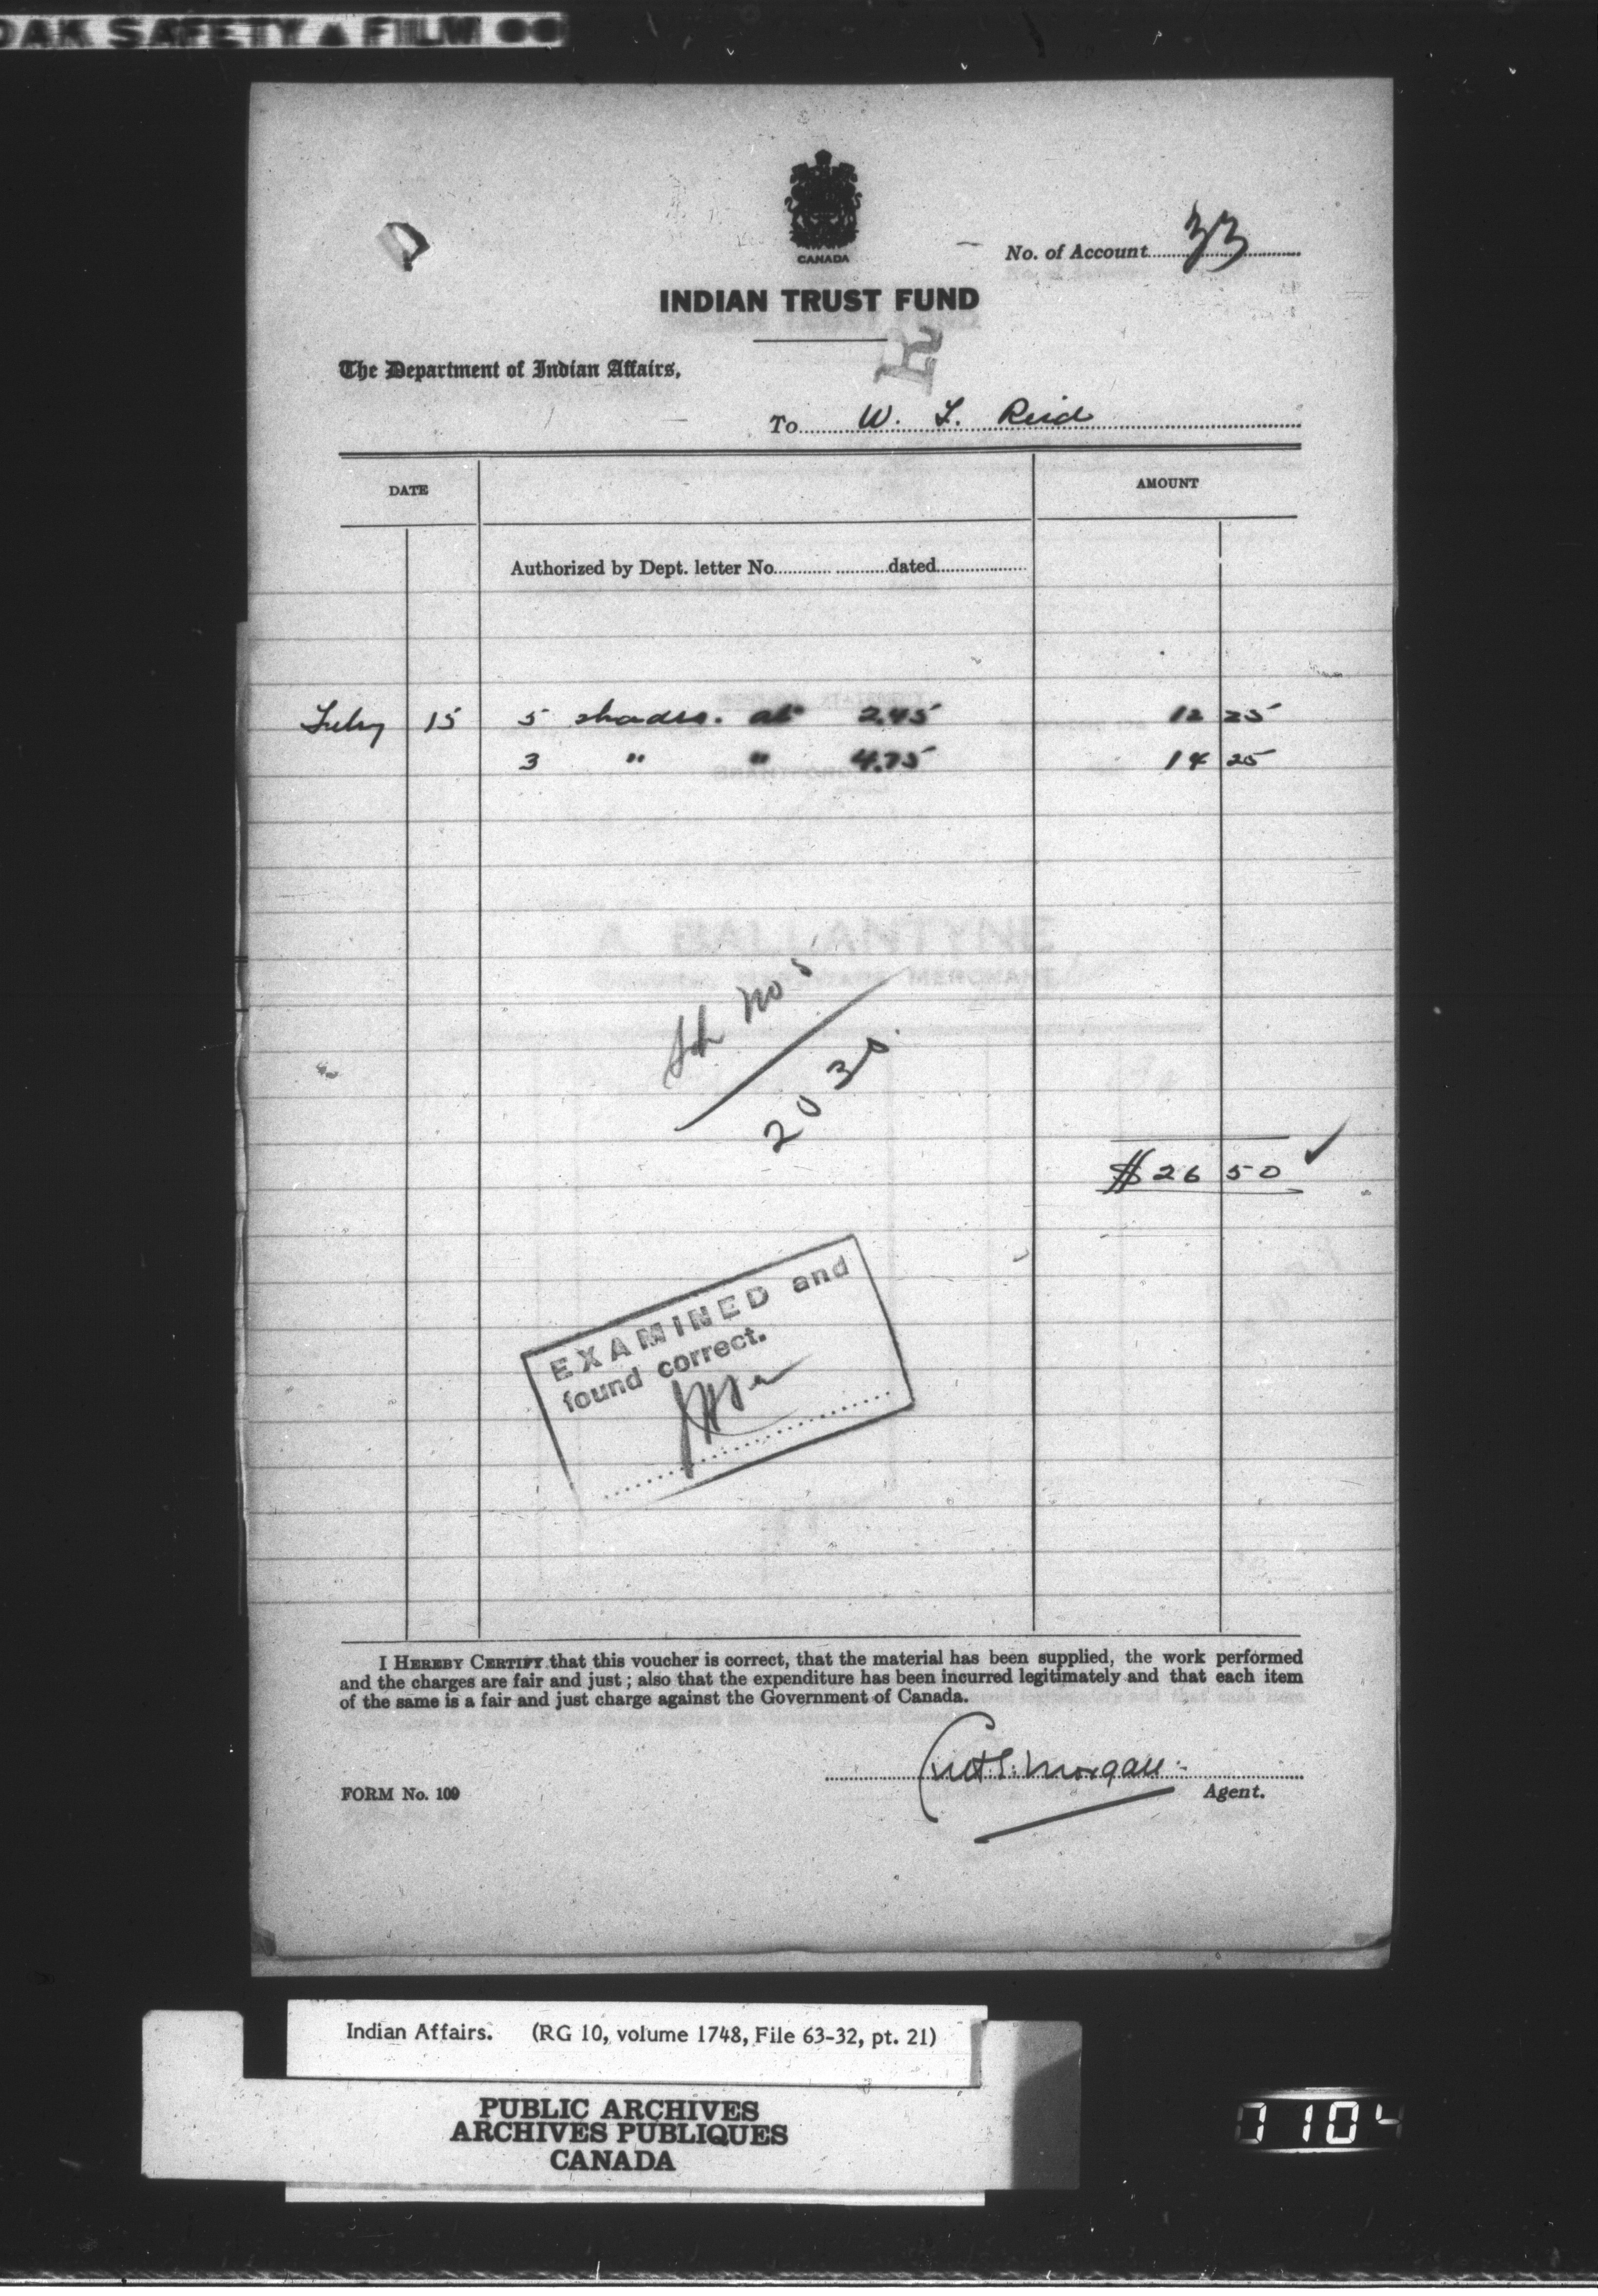 DAK SAFETY ▲ FILM ●●
CANADA
No. of Account 33
INDIAN TRUST FUND
R
The Department of Indian Affairs,
To W. L. Reid
DATE
AMOUNT
Authorized by Dept. letter No. dated
July 15 5 shades. at 2.45 12 25
3 " " 4.75 14 25
A. BALLANTYNE
MERCHANT
Sch No 5
2030
$26 50 ✓
EXAMINED and
found correct.
I HEREBY CERTIFY that this voucher is correct, that the material has been supplied, the work performed
and the charges are fair and just; also that the expenditure has been incurred legitimately and that each item
of the same is a fair and just charge against the Government of Canada.
Morgan
FORM No. 109
Agent.
Indian Affairs. (RG 10, volume 1748, File 63-32, pt. 21)
PUBLIC ARCHIVES
ARCHIVES PUBLIQUES
CANADA
0104